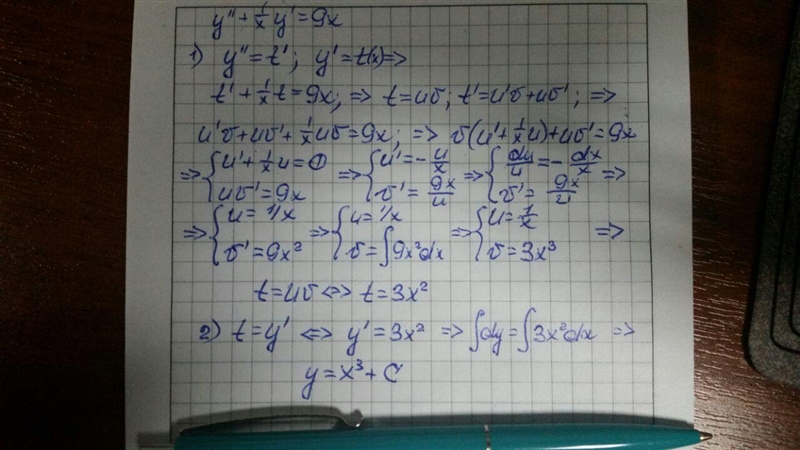 y'' + 1/x y' = 9x
1) y'' = t'; y' = t(x) =>
t' + 1/x t = 9x; => t = uv; t' = u'v + uv'; =>
u'v + uv' + 1/x uv = 9x; => v(u' + 1/x u) + uv' = 9x
=> { u' + 1/x u = 0 => { u' = - u/x => { du/u = - dx/x
{ uv' = 9x { v' = 9x/u { v' = 9x/u =>
=> { u = 1/x => { u = 1/x => { u = 1/x =>
{ v' = 9x² { v = ∫9x²dx { v = 3x³
t = uv <=> t = 3x²
2) t = y' <=> y' = 3x² => ∫dy = ∫3x²dx =>
y = x³ + C